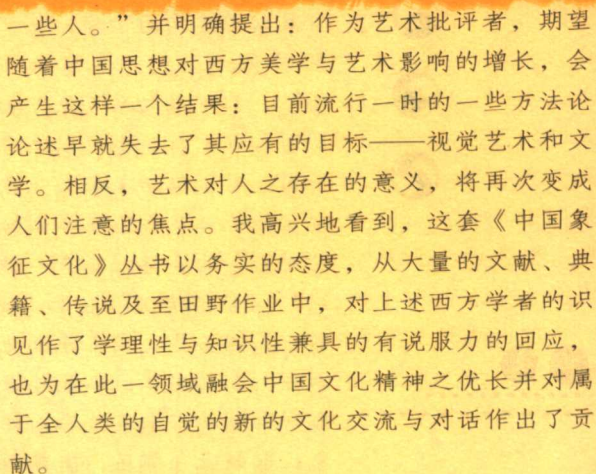 一些人。”并明确提出：作为艺术批评者，期望
随着中国思想对西方美学与艺术影响的增长，会
产生这样一个结果：目前流行一时的一些方法论
论述早就失去了其应有的目标——视觉艺术和文
学。相反，艺术对人之存在的意义，将再次变成
人们注意的焦点。我高兴地看到，这套《中国象
征文化》丛书以务实的态度，从大量的文献、典
籍、传说及至田野作业中，对上述西方学者的识
见作了学理性与知识性兼具的有说服力的回应，
也为在此一领域融会中国文化精神之优长并对属
于全人类的自觉的新的文化交流与对话作出了贡
献。